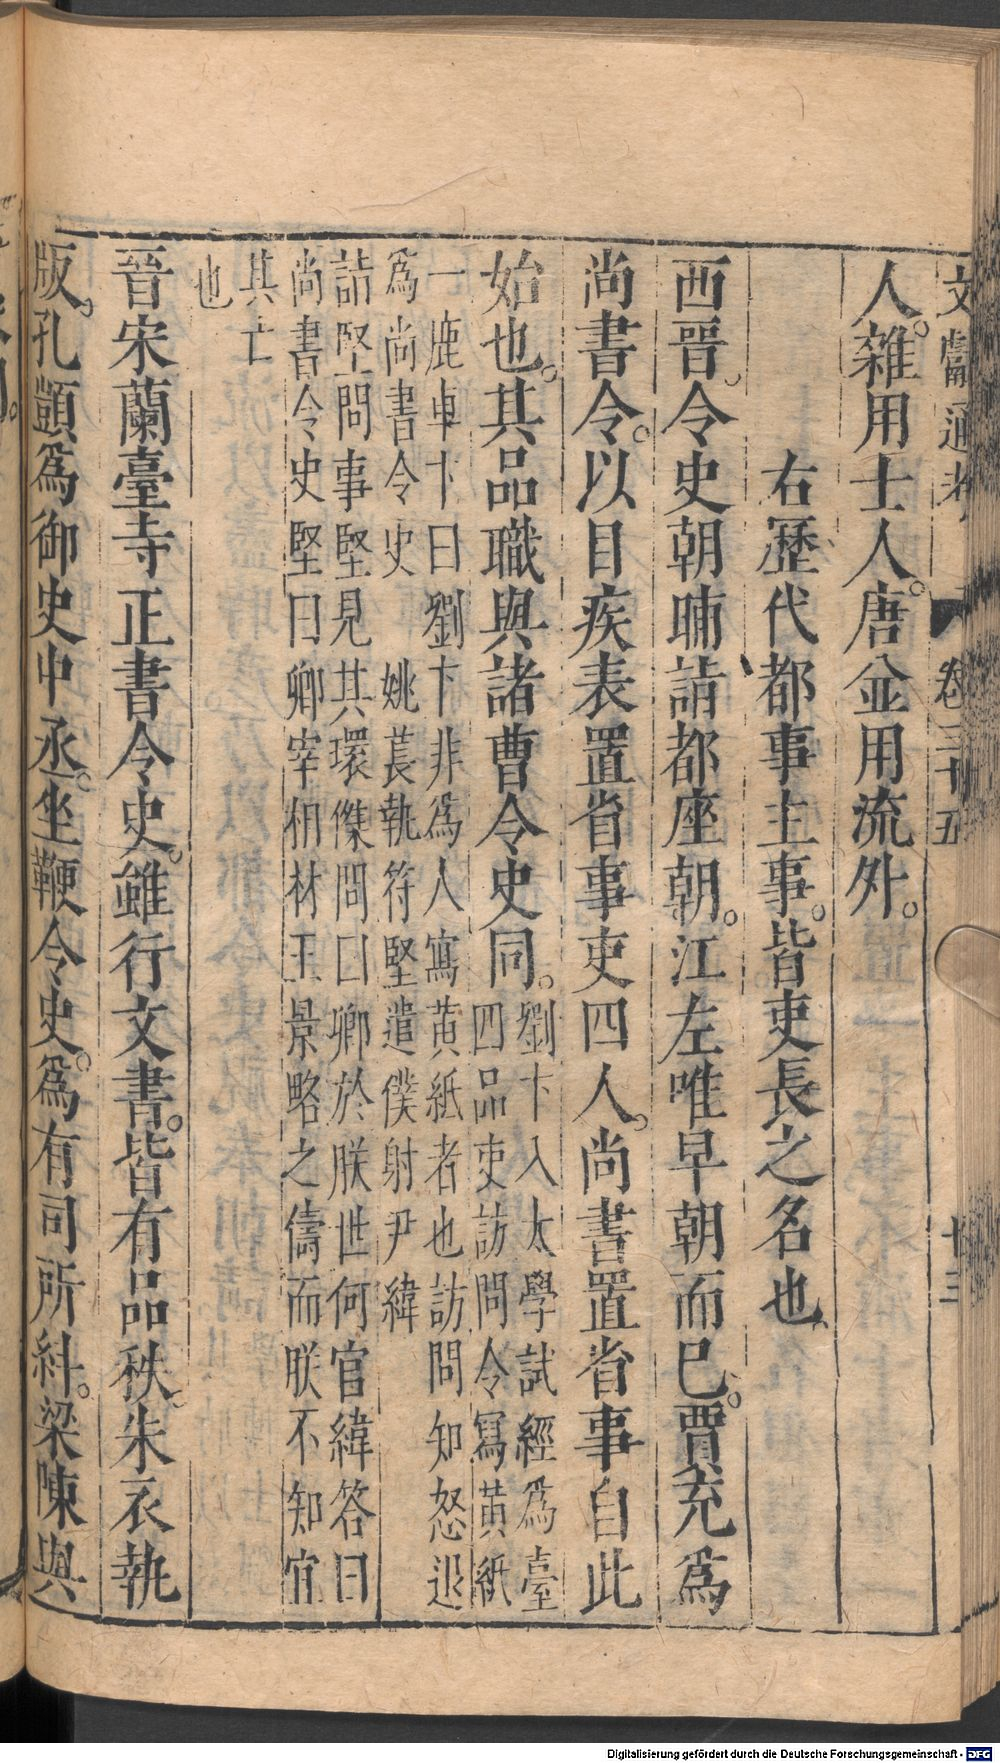 文獻通考 卷三十五 十三
人。雜用士人。唐並用流外。
右歷代都事主事。皆吏長之名也。
西晉。令史朝晡詣都座朝。江左唯早朝而已。賈充爲
尚書令。以目疾表置省事吏四人。尚書置省事自此
始也。其品職與諸曹令史同。
劉卞入太學試經爲臺
四品吏訪問令寫黃紙
一鹿車卞曰劉卞非爲人寫黃紙者也訪問知怒退
爲尚書令史 姚萇執符堅遣僕射尹緯
詰堅問事堅見其環傑問曰卿於朕世何官緯答曰
尚書令史堅曰卿宰相材王景略之儔而朕不知宜
其亡
也
晉宋蘭臺寺正書令史。雖行文書。皆有品秩。朱衣執
版。孔顗爲御史中丞。坐鞭令史。爲有司所糾。梁陳與
Digitalisierung gefördert durch die Deutsche Forschungsgemeinschaft - DFG